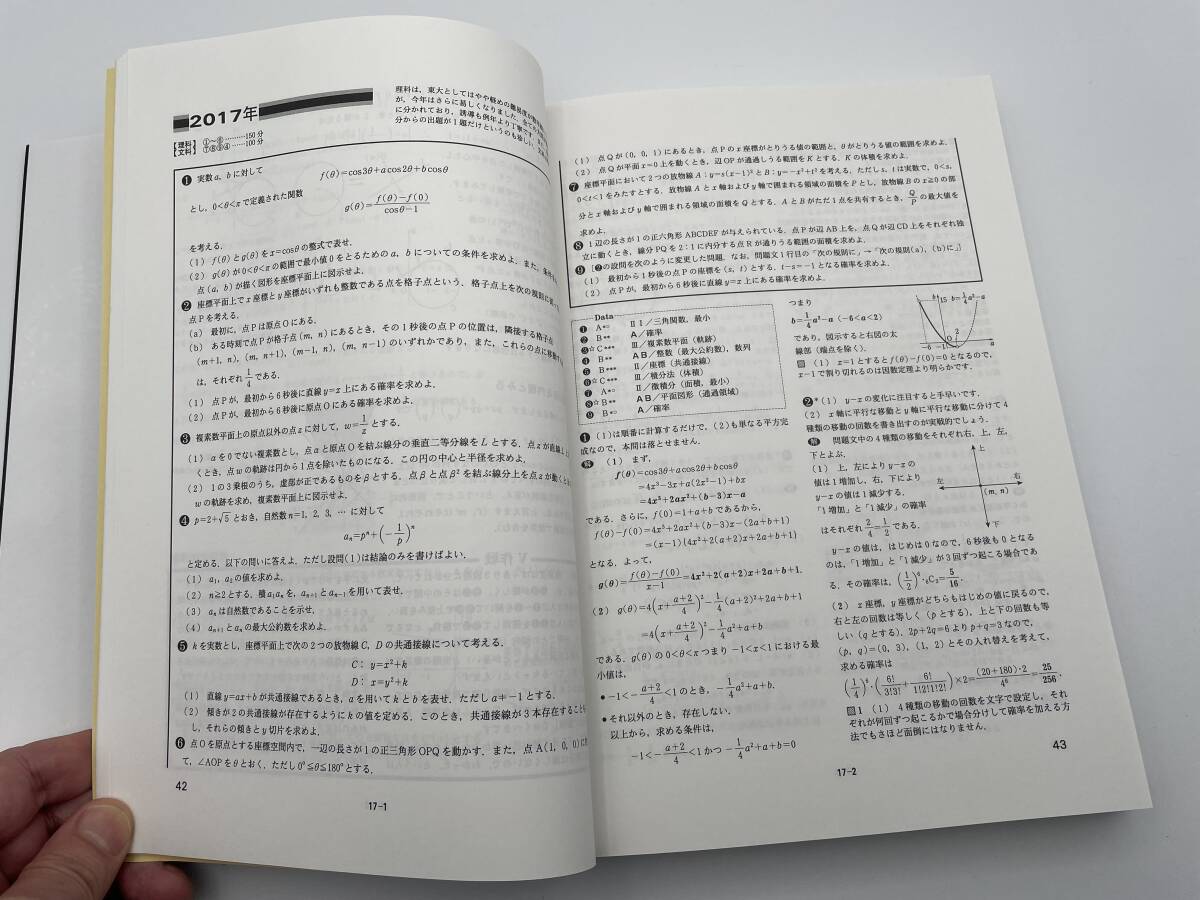 2017年
【理科】①〜⑥………150分
【文科】⑦⑧⑨④……100分
理科は，東大としてはやや軽めの難易度が
が，今年はさらに易しくなりました．全ての
に分かれており，誘導も例年より丁寧です．
分からの出題が1題だけというのも珍しい．
❶ 実数a，bに対して
f(θ)=cos3θ+acos2θ+bcosθ
とし，0<θ<πで定義された関数
g(θ)=\frac{f(θ)-f(0)}{cosθ-1}
を考える．
(1) f(θ)とg(θ)をx=cosθの整式で表せ．
(2) g(θ)が0<θ<πの範囲で最小値0をとるためのa，bについての条件を求めよ．また，条件
点(a，b)が描く図形を座標平面上に図示せよ．
❷ 座標平面上でx座標とy座標がいずれも整数である点を格子点という．格子点上を次の規則に
点Pを考える．
(a) 最初に，点Pは原点Oにある．
(b) ある時刻で点Pが格子点(m，n)にあるとき，その1秒後の点Pの位置は，隣接する格子点
(m+1，n)，(m，n+1)，(m-1，n)，(m，n-1)のいずれかであり，また，これらの点に移動する
は，それぞれ\frac{1}{4}である．
(1) 点Pが，最初から6秒後に直線y=x上にある確率を求めよ．
(2) 点Pが，最初から6秒後に原点Oにある確率を求めよ．
❸ 複素数平面上の原点以外の点zに対して，w=\frac{1}{z}とする．
(1) αを0でない複素数とし，点αと原点Oを結ぶ線分の垂直二等分線をLとする．点zが直線L上
くとき，点wの軌跡は円から1点を除いたものになる．この円の中心と半径を求めよ．
(2) 1の3乗根のうち，虚部が正であるものをβとする．点βと点β²を結ぶ線分上を点zが動くとき
wの軌跡を求め，複素数平面上に図示せよ．
❹ p=2+√5とおき，自然数n=1，2，3，…に対して
aₙ=pⁿ+(-\frac{1}{p})ⁿ
と定める．以下の問いに答えよ．ただし設問(1)は結論のみを書けばよい．
(1) a₁，a₂の値を求めよ．
(2) n≧2とする．積a₁aₙを，aₙ₊₁とaₙ₋₁を用いて表せ．
(3) aₙは自然数であることを示せ．
(4) aₙ₊₁とaₙの最大公約数を求めよ．
❺ kを実数とし，座標平面上で次の2つの放物線C，Dの共通接線について考える．
C：y=x²+k
D：x=y²+k
(1) 直線y=ax+bが共通接線であるとき，aを用いてkとbを表せ．ただしa≠-1とする．
(2) 傾きが2の共通接線が存在するようにkの値を定める．このとき，共通接線が3本存在すること
し，それらの傾きとy切片を求めよ．
❻ 点Oを原点とする座標空間内で，一辺の長さが1の正三角形OPQを動かす．また，点A(1，0，0)に
て，∠AOPをθとおく．ただし0°≦θ≦180°とする．
42
17-1
(1) 点Qが(0，0，1)にあるとき，点Pのx座標がとりうる値の範囲と，θがとりうる値の範囲を求めよ．
(2) 点Qが平面x=0上を動くとき，辺OPが通過しうる範囲をKとする．Kの体積を求めよ．
❼ 座標平面において2つの放物線A：y=s(x-1)²とB：y=-x²+t²を考える．ただしs，tは実数で，0<s，
0<t<1をみたすとする．放物線Aとx軸およびy軸で囲まれる領域の面積をPとし，放物線Bのx≧0の部
分とx軸およびy軸で囲まれる領域の面積をQとする．AとBがただ1点を共有するとき，\frac{Q}{P}の最大値を
求めよ．
❽ 1辺の長さが1の正六角形ABCDEFが与えられている．点Pが辺AB上を，点Qが辺CD上をそれぞれ独
立に動くとき，線分PQを2：1に内分する点Rが通りうる範囲の面積を求めよ．
❾ [❷の設問を次のように変更した問題．なお，問題文1行目の「次の規則に」→「次の規則(a)，(b)に」]
(1) 最初から1秒後の点Pの座標を(s，t)とする．t-s=-1となる確率を求めよ．
(2) 点Pが，最初から6秒後に直線y=x上にある確率を求めよ．
Data
❶ A*○ ⅡⅠ／三角関数，最小
❷ B** A／確率
❸☆C*** Ⅲ／複素数平面（軌跡）
❹ B** AB／整数（最大公約数），数列
❺ B*** Ⅱ／座標（共通接線）
❻☆C*** Ⅲ／積分法（体積）
❼ A*○ Ⅱ／微積分（面積，最小）
❽☆B** AB／平面図形（通過領域）
❾ B*○ A／確率
❶ (1)は順番に計算するだけで，(2)も単なる平方完
成なので，本問は落とせません．
解 (1) まず，
f(θ)=cos3θ+acos2θ+bcosθ
=4x³-3x+a(2x²-1)+bx
=4x³+2ax²+(b-3)x-a
である．さらに，f(0)=1+a+bであるから，
f(θ)-f(0)=4x³+2ax²+(b-3)x-(2a+b+1)
=(x-1){4x²+2(a+2)x+2a+b+1}
となる．よって，
g(θ)=\frac{f(θ)-f(0)}{x-1}=4x²+2(a+2)x+2a+b+1.
(2) g(θ)=4(x+\frac{a+2}{4})²-\frac{1}{4}(a+2)²+2a+b+1
=4(x+\frac{a+2}{4})²-\frac{1}{4}a²+a+b
である．g(θ)の0<θ<πつまり-1<x<1における最
小値は，
●-1<-\frac{a+2}{4}<1のとき，-\frac{1}{4}a²+a+b.
●それ以外のとき，存在しない．
以上から，求める条件は，
-1<-\frac{a+2}{4}<1かつ-\frac{1}{4}a²+a+b=0
つまり
b=\frac{1}{4}a²-a（-6<a<2）
であり，図示すると右図の太
線部（端点を除く）．
b
15
b=\frac{1}{4}a²-a
-6
-1
2
a
注 (1) x=1とするとf(θ)-f(0)=0となるので，
x-1で割り切れるのは因数定理より明らかです．
❷*(1) y-xの変化に注目すると手早いです．
(2) x軸に平行な移動とy軸に平行な移動に分けて4
種類の移動の回数を書き出すのが実戦的でしょう．
解 問題文中の4種類の移動をそれぞれ右，上，左，
下とよぶ．
(1) 上，左によりy-xの
値は1増加し，右，下により
y-xの値は1減少する．
「1増加」と「1減少」の確率
はそれぞれ\frac{2}{4}=\frac{1}{2}である．
上
左
右
(m，n)
下
y-xの値は，はじめは0なので，6秒後も0となる
のは，「1増加」と「1減少」が3回ずつ起こる場合であ
る．その確率は，(\frac{1}{2})⁶・₆C₃=\frac{5}{16}.
(2) x座標，y座標がどちらもはじめの値に戻るので，
右と左の回数は等しく（pとする），上と下の回数も等
しい（qとする）．2p+2q=6よりp+q=3なので，
(p，q)=(0，3)，(1，2)とその入れ替えを考えて，
求める確率は
(\frac{1}{4})⁶・(\frac{6!}{3!3!}+\frac{6!}{1!1!2!2!})×2=\frac{(20+180)・2}{4⁶}=\frac{25}{256}.
注1 (1) 4種類の移動の回数を文字で設定し，それ
ぞれが何回ずつ起こるかで場合分けして確率を加える方
法でもさほど面倒にはなりません．
43
17-2